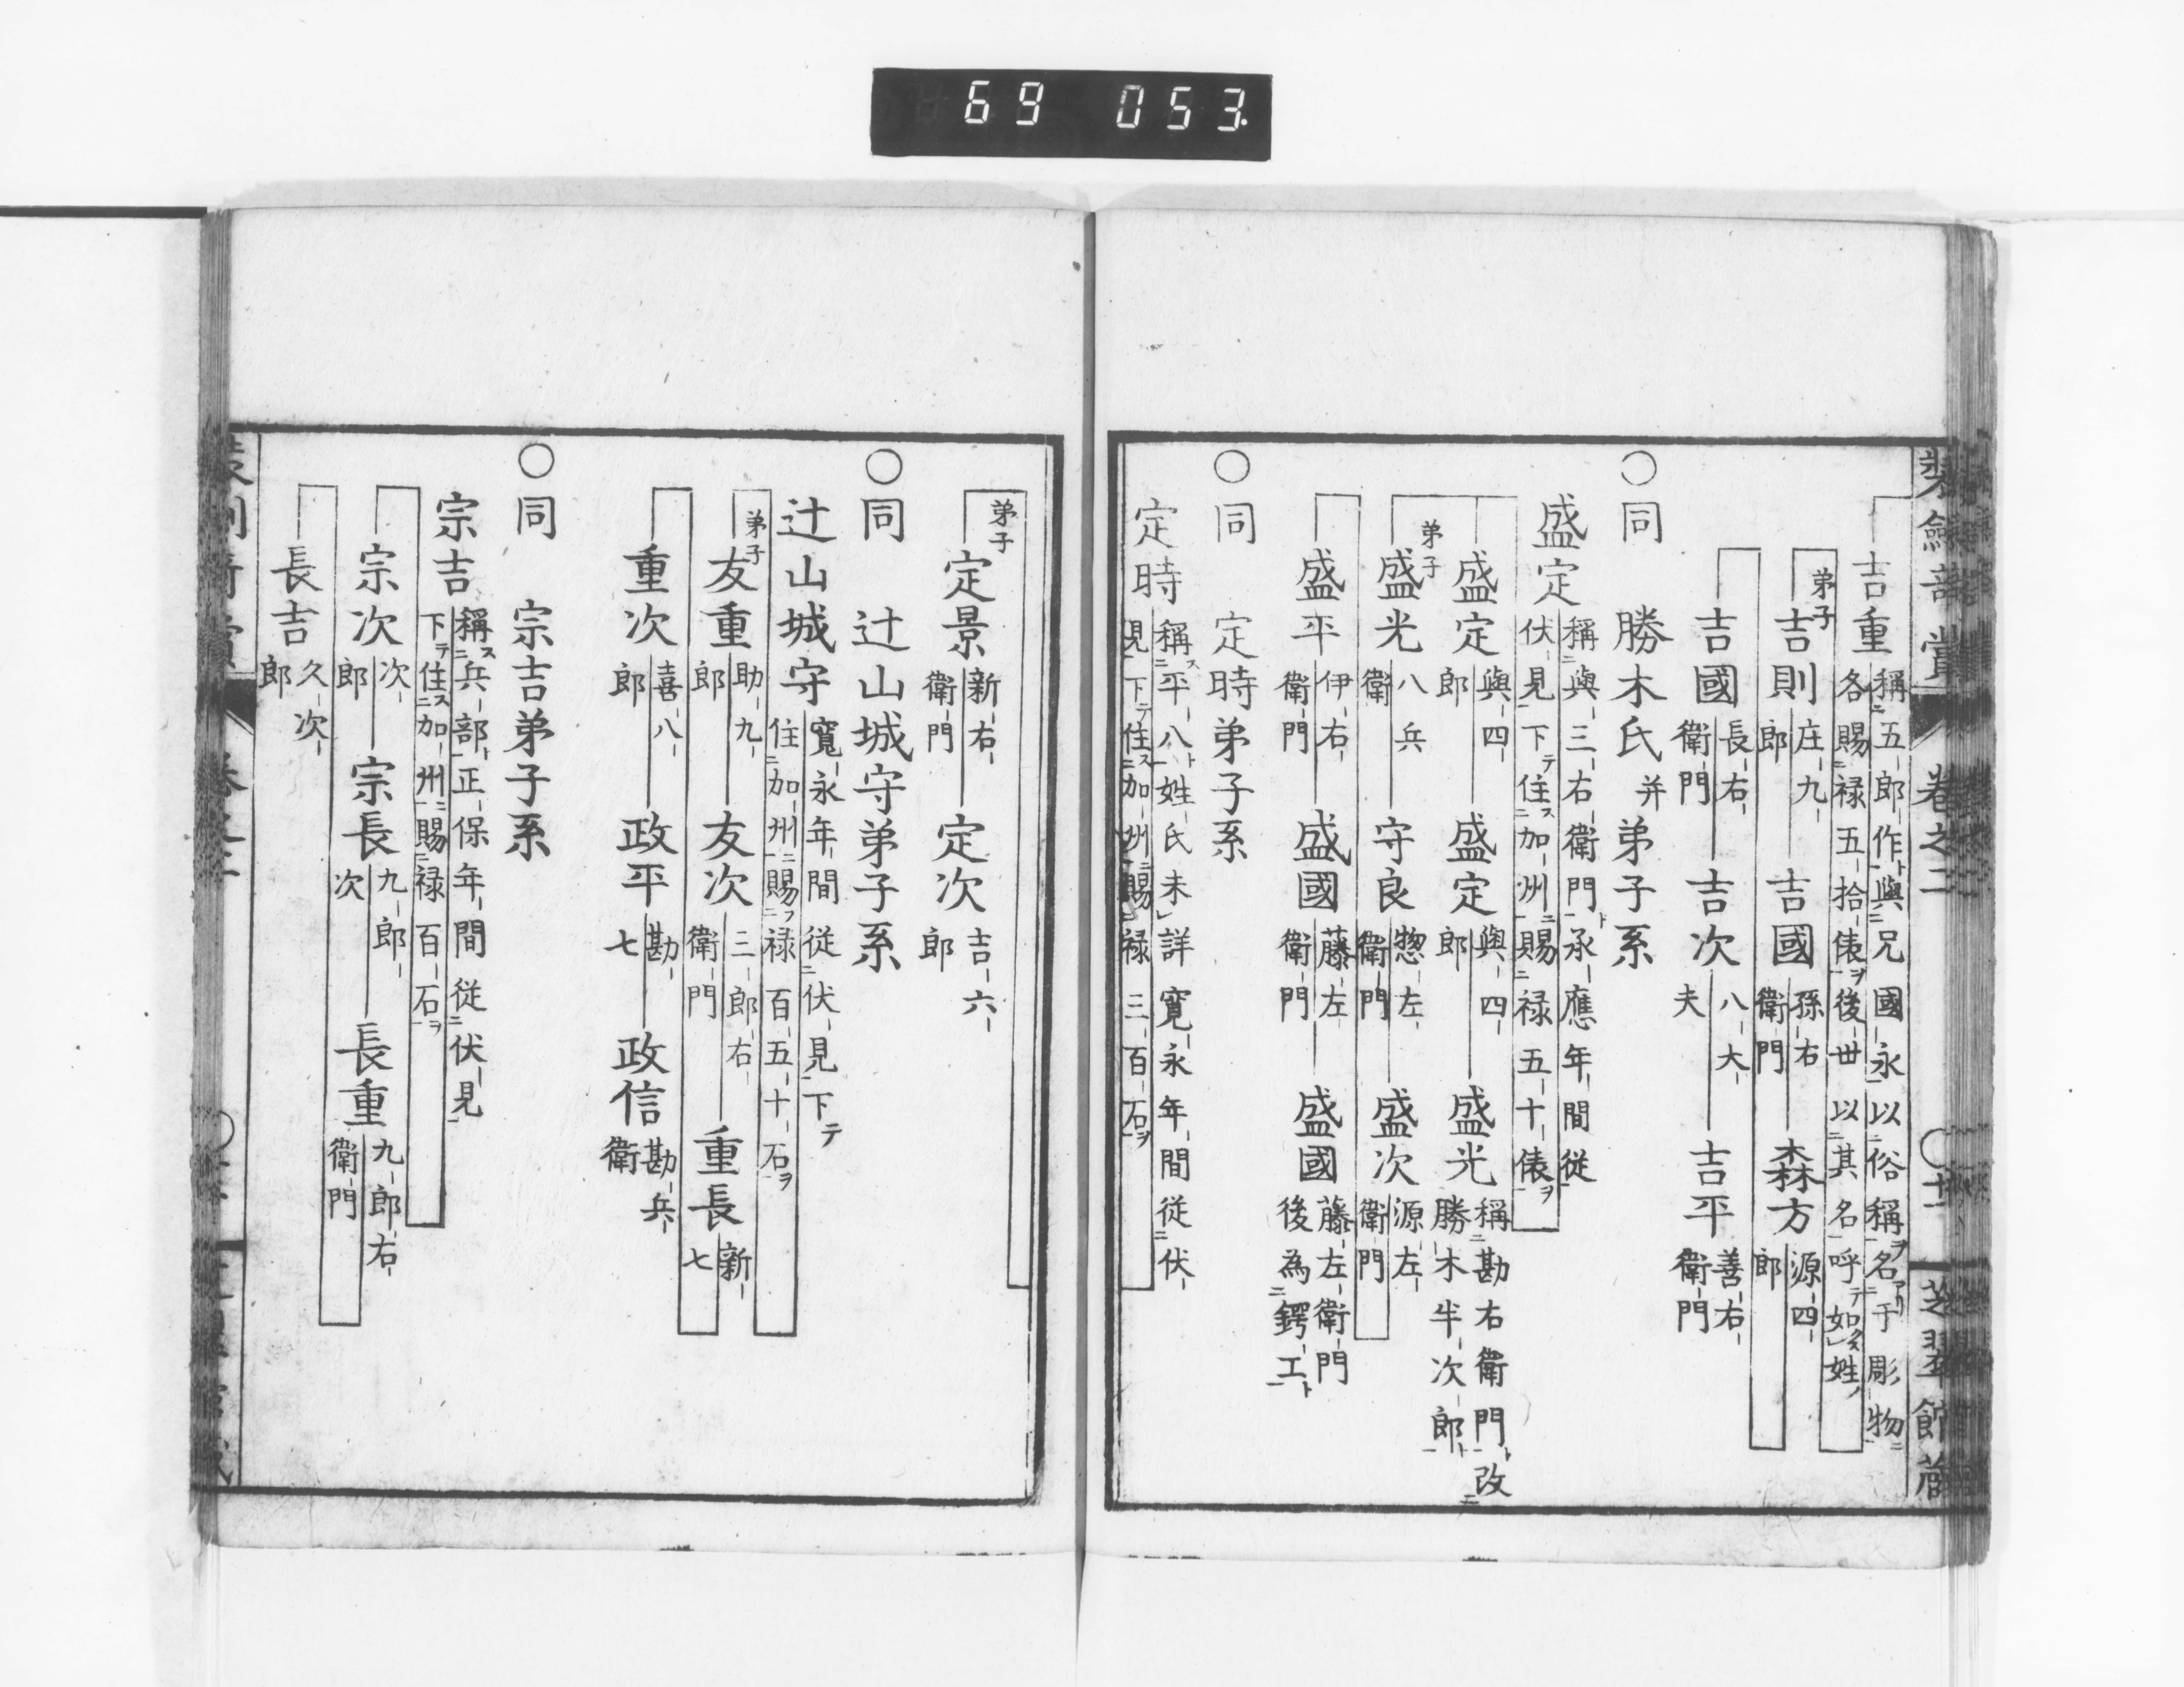 69 053
吉重 稱ニ五郎作ト與ニ兄國永以ニ俗稱ヲ名アリ于彫物ニ
各賜ニ禄五拾俵ヲ後世以ニ其名呼テ如ク姓ノ
弟子 吉則 庄九郎 吉國 孫右衛門 森方 源四郎
吉國 長右衛門 吉次 八大夫 吉平 善右衛門
○同 勝木氏并弟子系
盛定 稱ニ與三右衛門ト承應年間従
伏見下テ住スニ加州ニ賜ニ禄五十俵ヲ
盛定 與四郎 盛定 與四郎 盛光 稱ニ勘右衛門ト改ニ
勝木半次郎ト
弟子 盛光 八兵衛 守良 惣左衛門 盛次 源左衛門
盛平 伊右衛門 盛國 藤左衛門 盛國 藤左衛門
後為ニ鍔工ト
○同 定時弟子系
定時 稱スニ平八ト姓氏未詳寛永年間従ニ伏
見下テ住スニ加州ニ賜ニ禄三百石ヲ
裝劔竒賞 卷之二 ○十一 芝翠館藏
弟子 定景 新右衛門 定次 吉六郎
○同 辻山城守弟子系
辻山城守 寛永年間従ニ伏見下テ
住ニ加州ニ賜フニ禄百五十石ヲ
弟子 友重 助九郎 友次 三郎右衛門 重長 新七
重次 喜八郎 政平 勘七 政信 勘兵衛
○同 宗吉弟子系
宗吉 稱スニ兵部正保年間従ニ伏見
下テ住スニ加州ニ賜ニ禄百石ヲ
宗次 次郎 宗長 九郎次 長重 九郎右衛門
長吉 久次郎